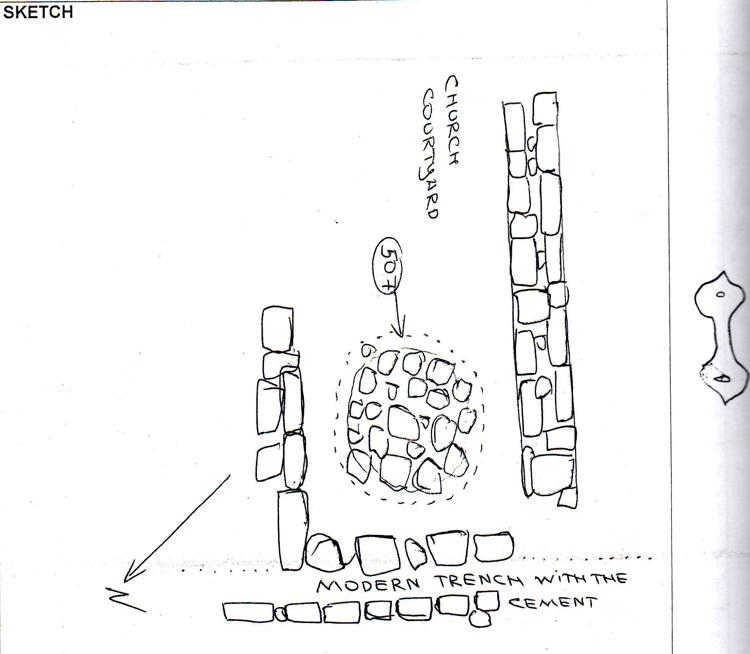 SKETCH
CHURCH
COURTYARD
507
MODERN TRENCH WITH THE
CEMENT
N